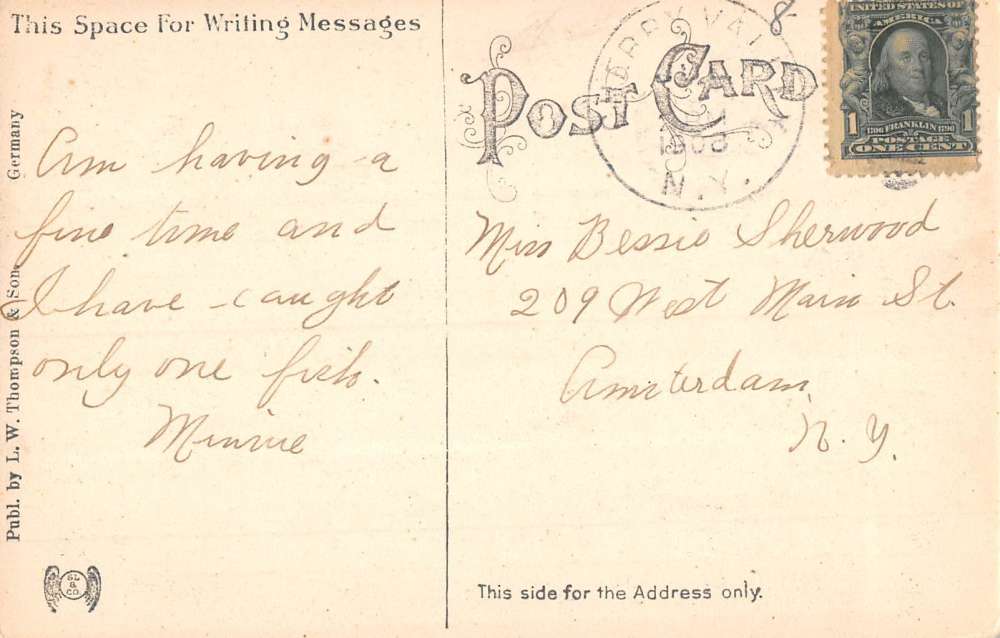 This Space For Writing Messages
POST CARD
UNITED STATES OF
AMERICA
1
1706 FRANKLIN 1790
1
POSTAGE
ONE CENT
8
1908
N.Y.
Am having a
fine time and
I have caught
only one fish.
Minnie
Miss Bessie Sherwood
209 West Main St.
Amsterdam,
N. Y.
Publ. by L. W. Thompson & Son, Germany
SL
&
CO.
This side for the Address only.